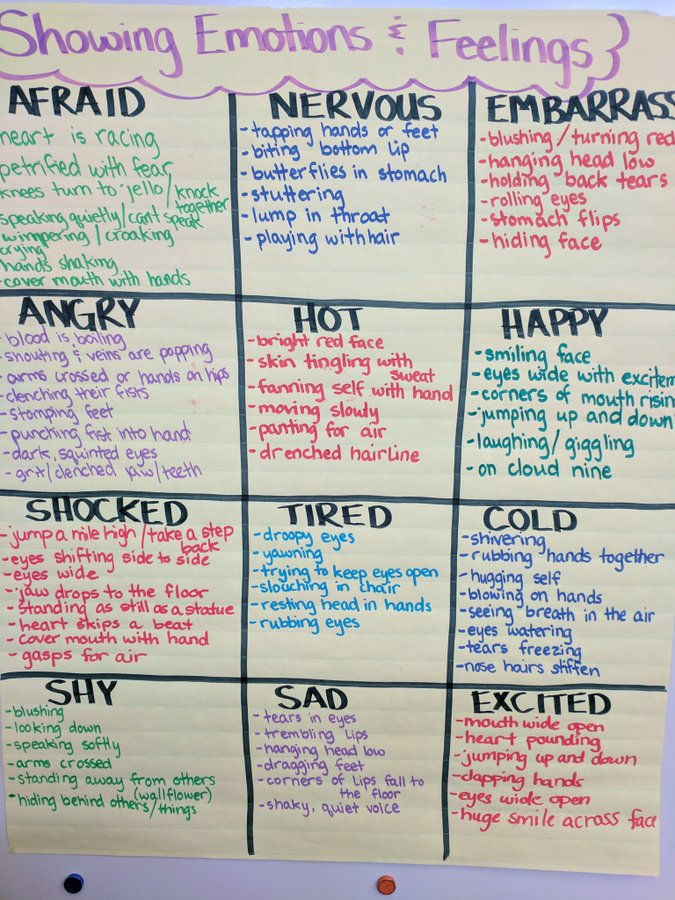 Showing Emotions & Feelings}
AFRAID
heart is racing
petrified with fear
knees turn to jello/knock
together
speaking quietly/can't speak
wimpering/croaking
crying
-hands shaking
-cover mouth with hands
NERVOUS
-tapping hands or feet
-biting bottom lip
-butterflies in stomach
-stuttering
-lump in throat
-playing with hair
EMBARRASS
-blushing/turning red
-hanging head low
-holding back tears
-rolling eyes
-stomach flips
-hiding face
ANGRY
-blood is boiling
-shouting & veins are popping
-arms crossed or hands on hips
-clenching their fists
-stomping feet
-punching fist into hand
-dark, squinted eyes
-grit/clenched jaw/teeth
HOT
-bright red face
-skin tingling with
sweat
-fanning self with hand
-moving slowly
-panting for air
-drenched hairline
HAPPY
-smiling face
-eyes wide with excitem
-corners of mouth rising
-jumping up and down
-laughing/giggling
-on cloud nine
SHOCKED
-jump a mile high/take a step
back
-eyes shifting side to side
-eyes wide
-jaw drops to the floor
-standing as still as a statue
-heart skips a beat
-cover mouth with hand
-gasps for air
TIRED
-droopy eyes
-yawning
-trying to keep eyes open
-slouching in chair
-resting head in hands
-rubbing eyes
COLD
-shivering
-rubbing hands together
-hugging self
-blowing on hands
-seeing breath in the air
-eyes watering
-tears freezing
-nose hairs stiffen
SHY
-blushing
-looking down
-speaking softly
-arms crossed
-standing away from others
(wallflower)
-hiding behind others/things
SAD
-tears in eyes
-trembling lips
-hanging head low
-dragging feet
-corners of lips fall to
the floor
-shaky, quiet voice
EXCITED
-mouth wide open
-heart pounding
-jumping up and down
-clapping hands
-eyes wide open
-huge smile across face